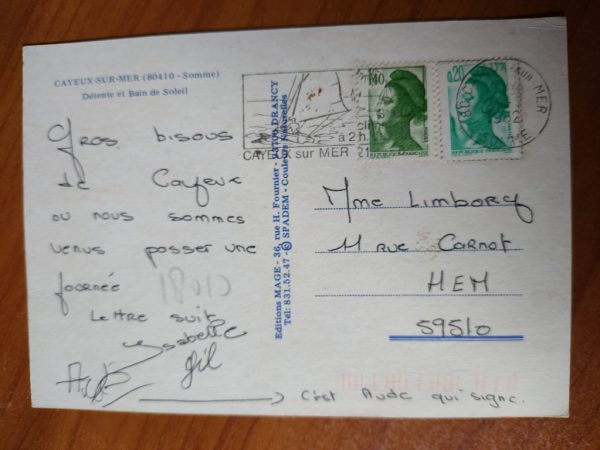 CAYEUX-SUR-MER (80410 - Somme)
Détente et Bain de Soleil
Gros bisous
de Cayeux
ou nous sommes
venus passer une
journée
18010
Lettre suit
Isabelle
Gil
C'est Aude qui signe.
Editions MAGE - 36, rue H. Fournier - DRANCY
Tél: 831.52.47 - © SPADEM - Couleurs Naturelles
à 2h
CAYEUX sur MER
1,40
0,20
MER
Mme Limborg
11 rue Carnot
HEM
59510